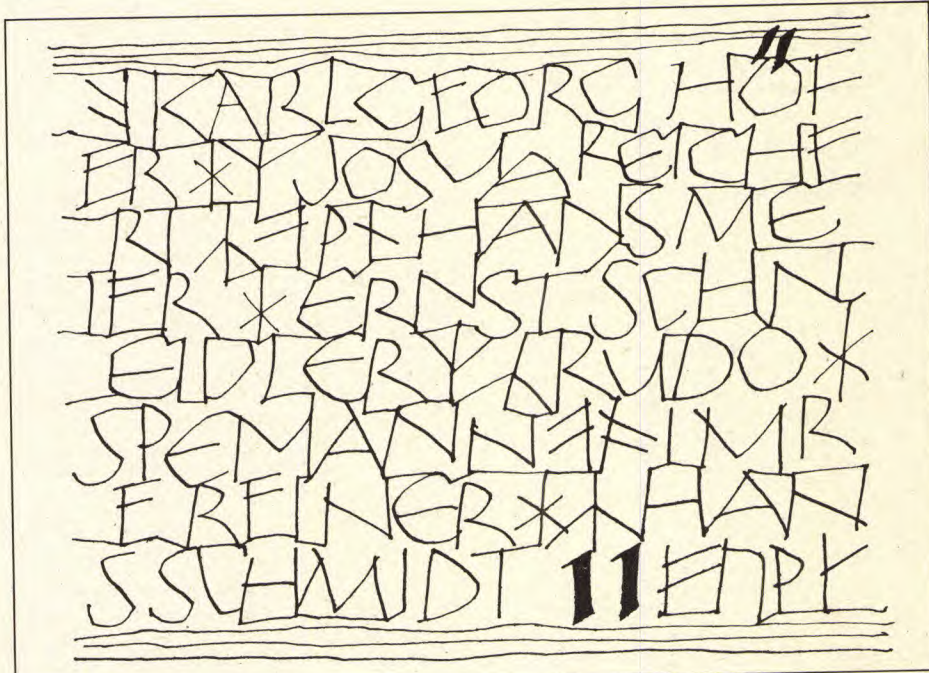 KARL GEORG HÖF
ER X JOSUA REICHE
R HANS ME
ER X ERNST SCHN
EIDLER RUDO
SPEMANN IMR
E REINER X HAN
S SCHMIDT 11